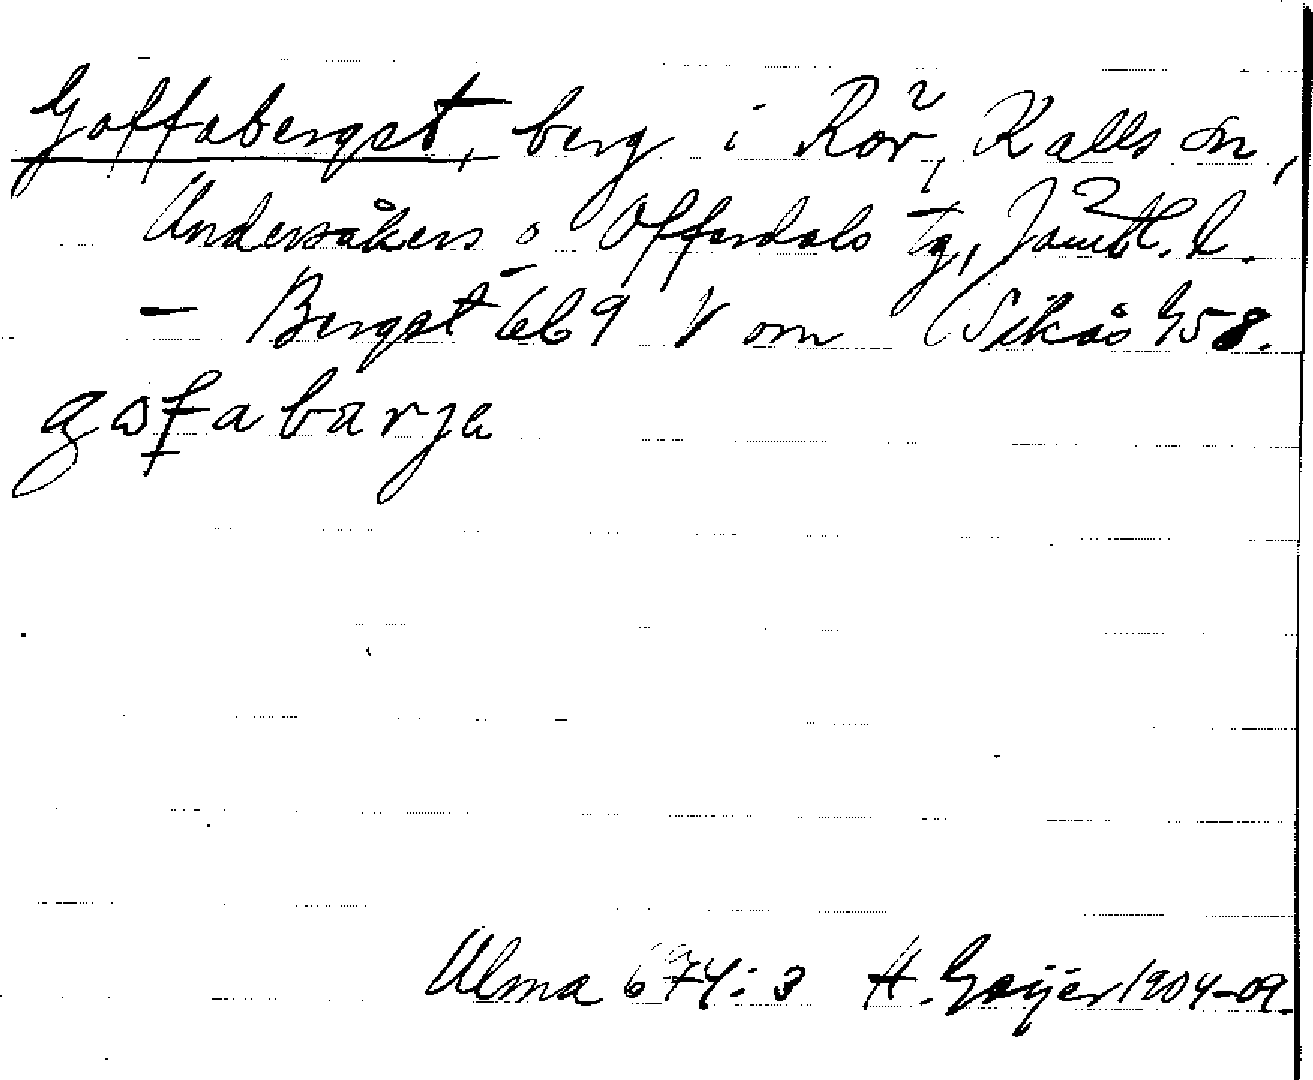 Goffaberget, berg i Rör, Kalls sn,
Undersåkers o Offerdals tg, Jämtl. l.
– Berget 669 V om Sikås 458.
gofabarja
Ulma 674:3 H. Geijer 1904-09.